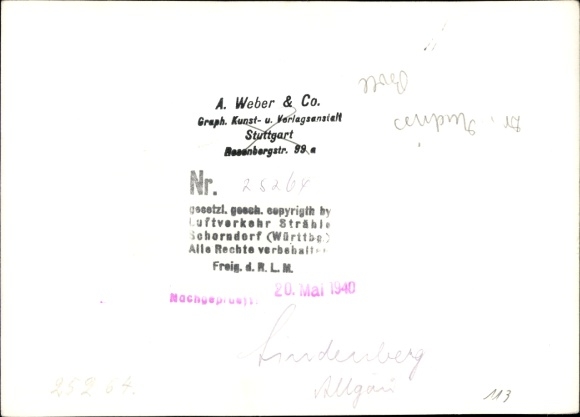 A. Weber & Co.
Graph. Kunst- u. Verlagsanstalt
Stuttgart
Rosenbergstr. 99 a
Nr. 25264
gesetzl. gesch. copyrigth by
Luftverkehr Strähle
Schorndorf (Württbg.)
Alle Rechte vorbehalten
Freig. d. R. L. M.
Nachgeprüft: 20. Mai 1940
Lindenberg
Allgäu
25264.
113